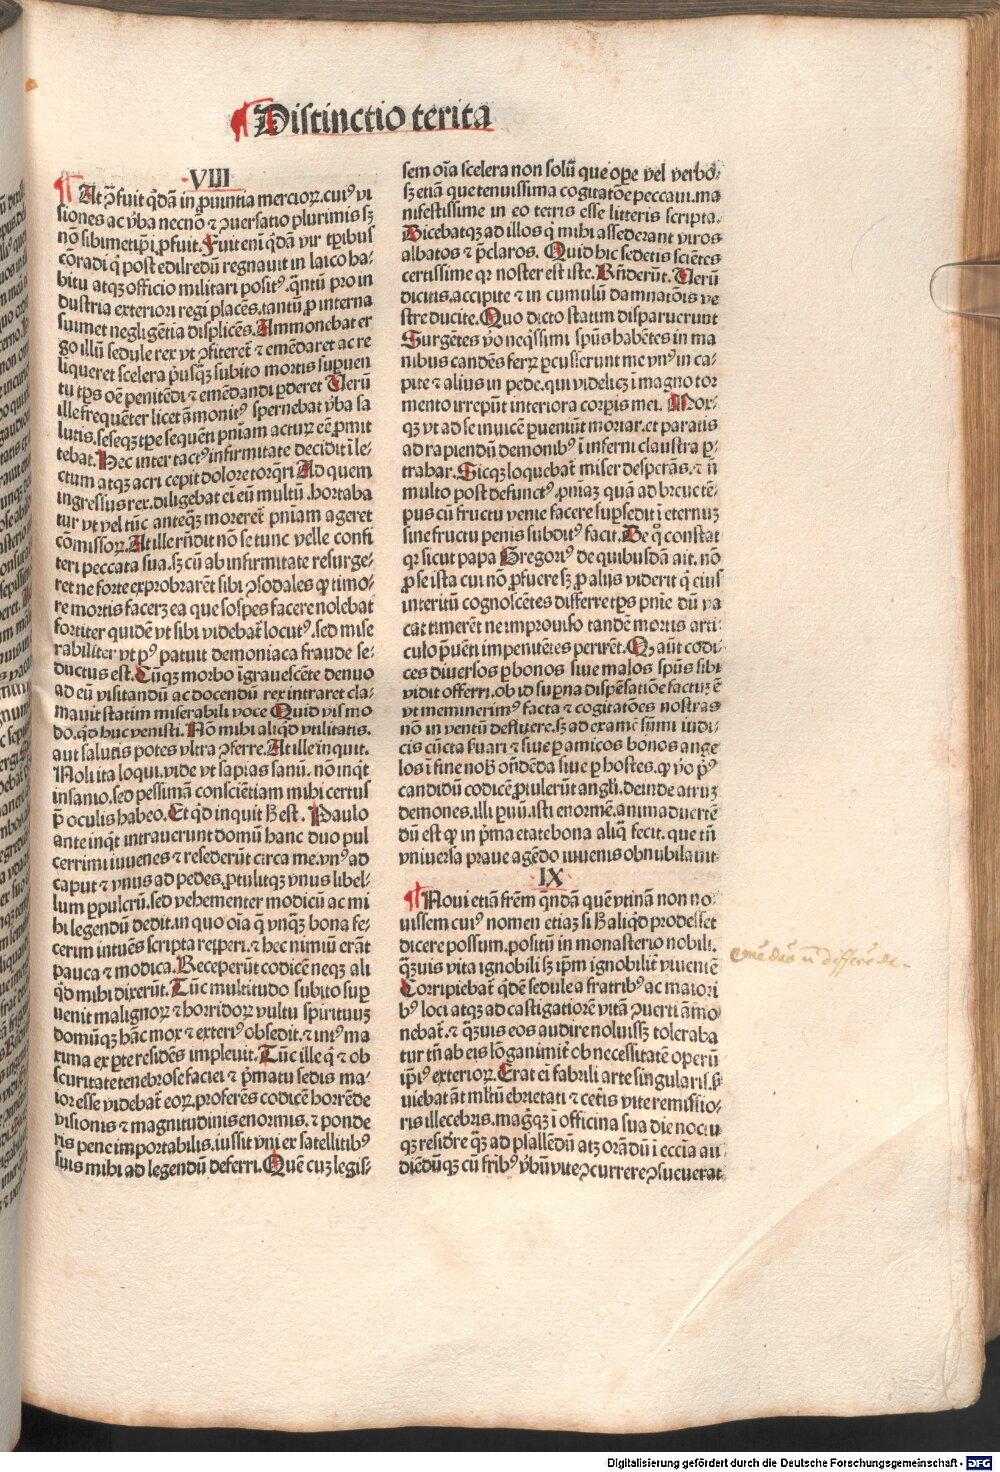 ¶Distinctio tercia
VIII
¶At ꝯ̃ fuit q̃dã in ꝓuintia mercioꝝ. cuiꝰ vi
siones ac v̾ba necnõ ⁊ ꝯuersatio plurimis sꝫ
nõ sibimetip̃i ꝓfuit. Fuit eni q̃dã vir tp̃ibus
cõradi q̃ post edilredũ regnauit in laico ha-
bitu atqꝫ officio militari positꝰ. q̃ntũ pro in
dustria exteriori regi placẽs. tantũ ꝓ interna
suimet negligẽtia displicẽs. Ammonebat er
go illũ sedule rex vt ꝯfiteret᷑ ⁊ emẽdaret ac re
liqueret scelera p̃usqꝫ subito mortis supuen
tu tp̃s oẽ penitẽdi ⁊ emẽdandi ꝑderet Uerũ
ille frequẽter licet ãmonitꝰ spernebat v̾ba sa
lutis. seseqꝫ tp̃e sequẽti pn̄iam acturꝫ eẽ ꝓmit
tebat. Hec inter tactꝰ infirmitate decidit ĩ le-
ctum atqꝫ acri cepit dolore torq̃ri Ad quem
ingressus rex. diligebat ei eũ multũ. hortaba
tur vt vel tũc anteqꝫ moreret᷑ pn̄iam ageret
cõmissoꝝ. At ille rñdit nõ se tunc velle confi
teri peccata sua. sꝫ cũ ab infirmitate resurge-
ret ne forte exprobrarẽt sibi ꝯsodales ꝙ timo-
re mortis facerꝫ ea que sospes facere nolebat
fortiter quidẽ vt sibi videbat᷑ locutꝰ. sed mise
rabiliter vt pꝰ patuit demoniaca fraude se-
ductus est. Cũqꝫ morbo ĩgrauescẽte denuo
ad eũ visitandũ ac docendũ rex intraret cla-
mauit statim miserabili voce Quid vis mo
do. qd̃ huc venisti. Nõ mihi aliqd̃ vtilitatis.
aut salutis potes vltra ꝯferre. At ille inquit.
Noli ita loqui. vide vt sapias sanũ. nõ inq̃t
insanio. sed pessimã consciẽtiam mihi certus
p̃ oculis habeo. Et qd̃ inquit ħ est. Paulo
ante inq̃t intrauerunt domũ hanc duo pul
cerrimi iuuenes ⁊ resederũt circa me. vnꝰ ad
caput ⁊ vnus ad pedes. ꝓtulitqꝫ vnus libel-
lum ꝑpulcrũ. sed vehementer modicũ ac mi
hi legendũ dedit. in quo oĩa q̃ vnqꝫ bona fe-
cerim intuẽs scripta repperi. ⁊ hec nimiũ erãt
pauca ⁊ modica. Receperũt codicẽ neqꝫ ali
qd̃ mihi dixerũt. Tũc multitudo subito sup
uenit malignoꝝ ⁊ horridoꝝ vultu spirituuꝫ
domũqꝫ hãc mox ⁊ exteriꝰ obsedit. ⁊ intꝰ ma
xima ex ꝑte residẽs impleuit. Tũc ille q̃ ⁊ ob
scuritate tenebrose faciei ⁊ p̃matu sedis ma-
ior esse videbat᷑ eoꝝ. proferẽs codicẽ horrẽde
visionis ⁊ magnitudinis enormis. ⁊ ponde
ris pene importabilis. iussit vni ex satellitibꝰ
suis mihi ad legendũ deferri. Quẽ cuꝫ legis-
sem oĩa scelera non solũ que oꝑe vel verbo.
sꝫ etiã que tenuissima cogitatõe peccaui. ma
nifestissime in eo tetris esse litteris scripta.
Dicebatqꝫ ad illos q̃ mihi assederant viros
albatos ⁊ p̃claros. Quid hic sedetis sciẽtes
certissime qꝛ noster est iste. Rñderũt. Uerũ
dicitis. accipite ⁊ in cumulũ damnatõis ve
stre ducite. Quo dicto statim disparuerunt
Surgẽtes v̾o neq̃ssimi spũs habẽtes in ma
nibus candẽs ferꝝ ꝑcusserunt me vnꝰ in ca-
pite ⁊ alius in pede. qui videlicꝫ ĩ magno tor
mento irrepũt interiora corꝑis mei. Mox-
qꝫ vt ad se inuicẽ ꝑueniũt moriar. et paratis
ad rapiendũ demonibꝰ ĩ inferni claustra ꝑ-
trahar. Sicqꝫ loquebat᷑ miser desperãs. ⁊ ñ
multo post defunctꝰ. pn̄iaꝫ quã ad breue tẽ-
pus cũ fructu venie facere supsedit ĩ eternuꝫ
sine fructu penis subditꝰ facit. De q̊ constat
qꝛ sicut papa Gregoriꝰ de quibusdã ait. nõ
ꝓ se ista cui nõ ꝓfuere sꝫ ꝓ alijs viderit q̃ eius
interitũ cognoscẽtes differre tp̃s pn̄ie dũ va
cat timerẽt ne improuiso tandẽ mortis arti-
culo p̃uẽti impenitẽres perirẽt. Q aũt codi-
ces diuersos ꝑ bonos siue malos spũs sibi
vidit offerri. ob id sup̃na dispẽsatiõe factuꝫ ẽ
vt meminerimꝰ facta ⁊ cogitatões nostras
nõ in ventũ defluere. sꝫ ad examẽ sũmi iudi-
cis cũcta ßuari ⁊ siue ꝑ amicos bonos ange
los ĩ fine nob̃ oñdẽda siue ꝑ hostes. ꝙ v̾o p̃ꝰ
candidũ codicẽ ꝓtulerũt angl̃i. deinde atruꝫ
demones. illi ꝑuũ. isti enormẽ. animaduertẽ
dũ est ꝙ in p̃ma etate bona aliq̃ fecit. que tñ
vniuersa praue agẽdo iuuenis obnubilauit
IX
¶Noui etiã frẽm q̃ndã quẽ vtinã non no-
uissem cuiꝰ nomen etiaꝫ si ħ aliqd̃ prodesset
dicere possum. positũ in monasterio nobili.
q̃ꝫuis vita ignobili sꝫ ip̃m ignobilit᷑ viuentẽ
Corripiebat᷑ qd̃ẽ sedule a fratribꝰ ac maiori
bꝰ loci atqꝫ ad castigatiorẽ vitã ꝯuerti ãmo
nebat᷑. ⁊ q̃ꝫuis eos audire noluissꝫ toleraba
tur tñ ab eis lõganimit᷑ ob necessitatẽ operũ
ip̃iꝰ exterioꝝ. Erat ei fabrili arte singularis. ß
uiebat añt ml̃tũ ebrietati ⁊ cet̃is vite remissio-
ris illecebris. mag̃qꝫ ĩ officina sua die noctu
qꝫ resid̃re q̃ꝫ ad psallẽdũ atꝫ orãdũ ĩ ecc̃ia au
diẽdũqꝫ cũ fr̃ibꝰ v̾bũ vite ꝯcurrere ꝯsueuerat.
Digitalisierung gefördert durch die Deutsche Forschungsgemeinschaft - DFG